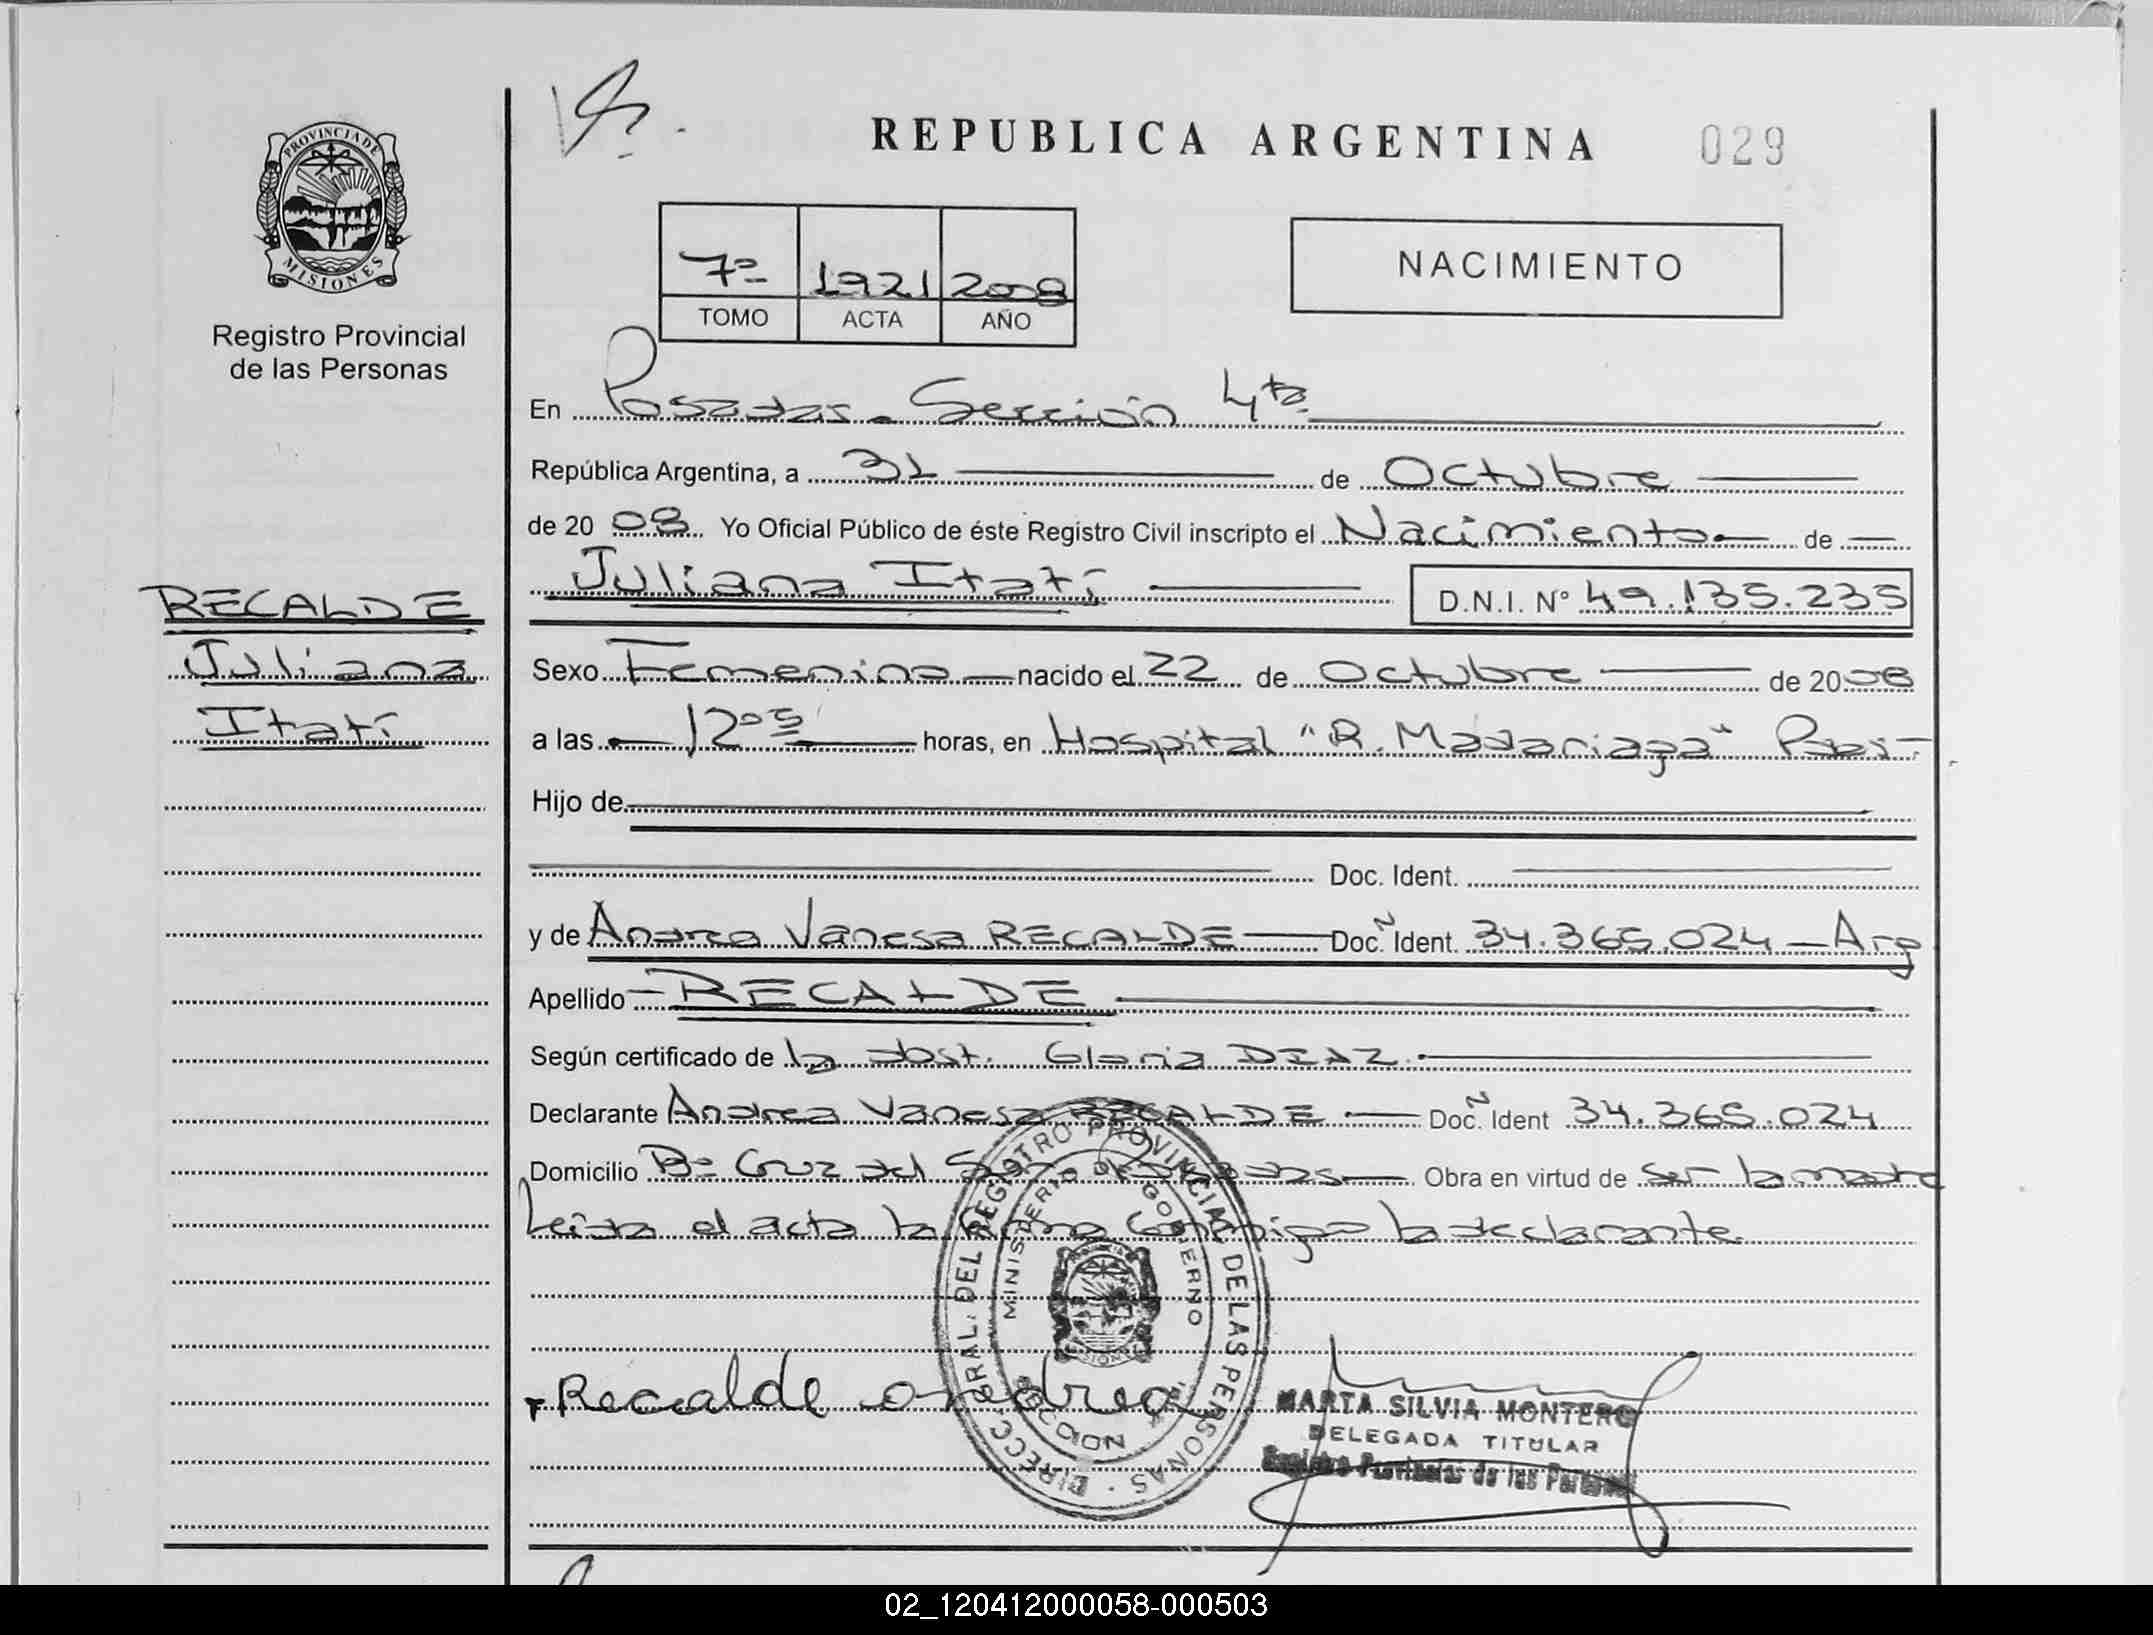 REPUBLICA ARGENTINA
029
PROVINCIA DE
MISIONES
Registro Provincial
de las Personas
7º 1921 2008
TOMO ACTA AÑO
NACIMIENTO
En Posadas - Sección 4ta
República Argentina, a 31 de Octubre
de 20 08 Yo Oficial Público de éste Registro Civil inscripto el Nacimiento de
Juliana Itatí D.N.I. Nº 49.135.235
RECALDE
Juliana
Itatí
Sexo Femenino nacido el 22 de Octubre de 2008
a las 12 05 horas, en Hospital "R. Madariaga" Pdas.
Hijo de
Doc. Ident.
y de Andrea Vanesa RECALDE Doc. Ñ Ident. 34.365.024 - Arg
Apellido RECALDE
Según certificado de la obst. Gloria DIAZ
Declarante Andrea Vanesa RECALDE Doc. Ñ Ident 34.365.024
Domicilio Bº Cruz del Sur Obra en virtud de ser la madre
Leida el acta la firma conmigo la declarante
DIRECC. GRAL. DEL REGISTRO PROVINCIAL DE LAS PERSONAS
MINISTERIO DE GOBIERNO
MISIONES
Recalde andrea
MARTA SILVIA MONTERO
DELEGADA TITULAR
Registro Provincial de las Personas
02_120412000058-000503